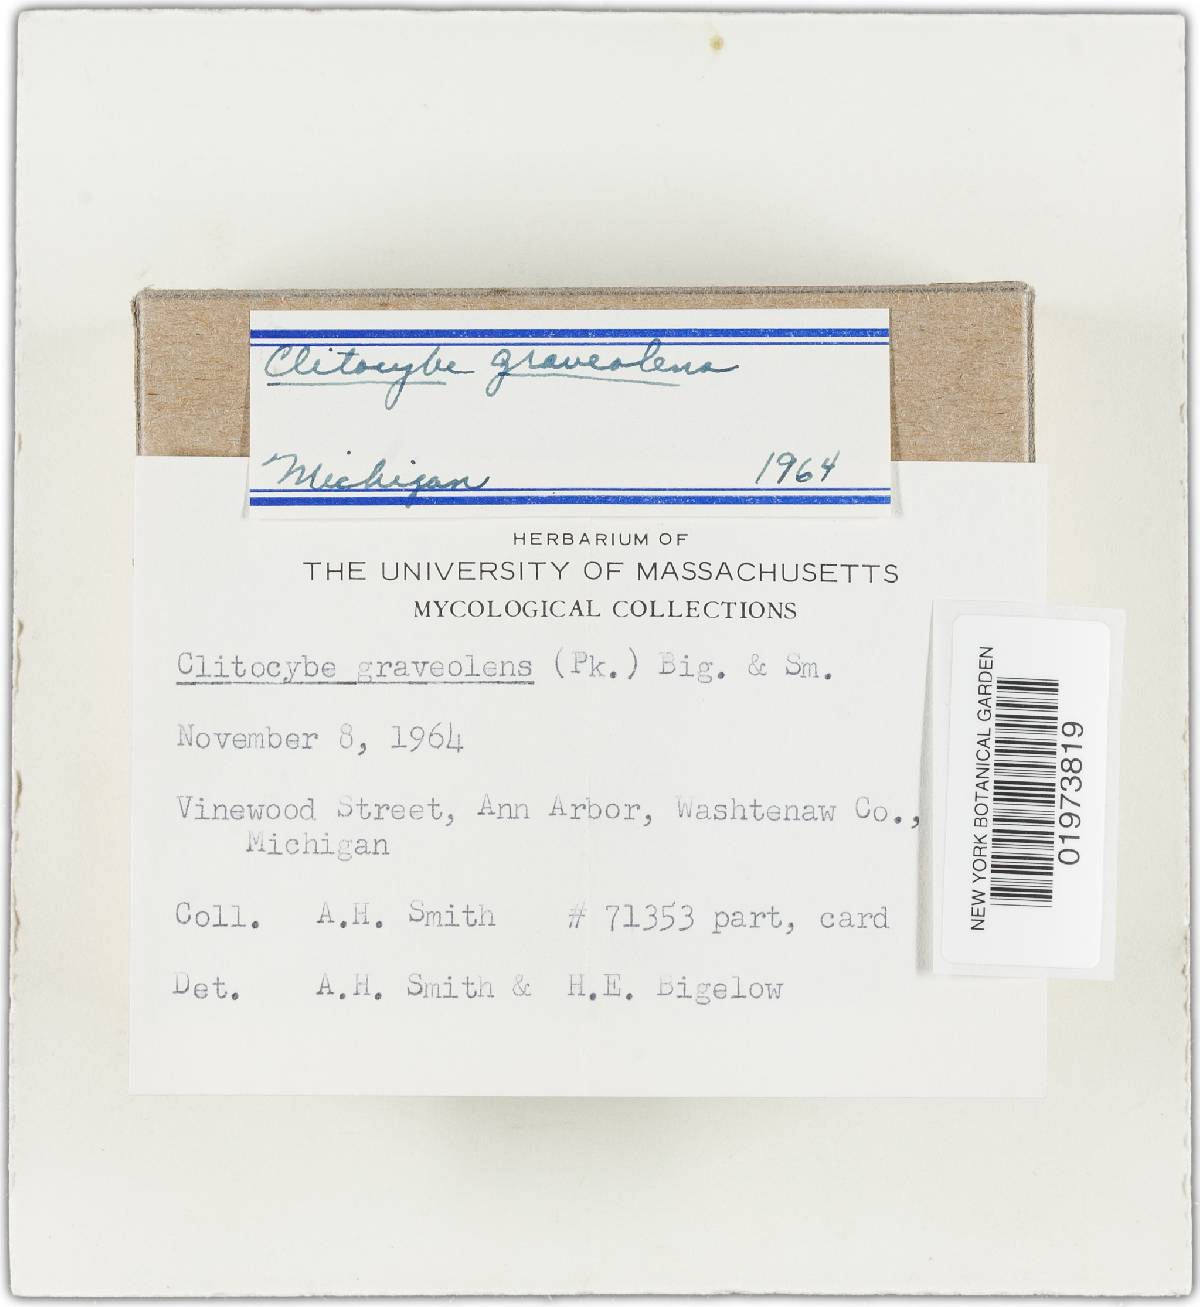 Clitocybe graveolens
Michigan 1964
HERBARIUM OF
THE UNIVERSITY OF MASSACHUSETTS
MYCOLOGICAL COLLECTIONS
Clitocybe graveolens (Pk.) Big. & Sm.
November 8, 1964
Vinewood Street, Ann Arbor, Washtenaw Co.,
Michigan
Coll. A.H. Smith # 71353 part, card
Det. A.H. Smith & H.E. Bigelow
NEW YORK BOTANICAL GARDEN
01973819